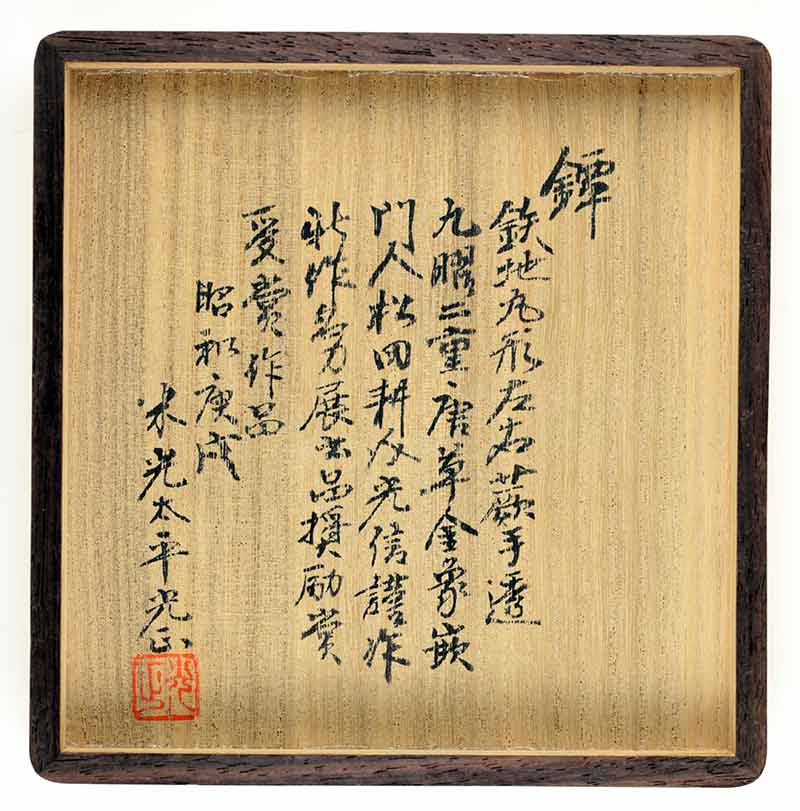 鐔
鉄地丸形左右蕨手透
九曜二重唐草金象嵌
門人松田耕光信謹作
新作刀展出品奨励賞
受賞作品
昭和庚戌
米光太平光正
光正